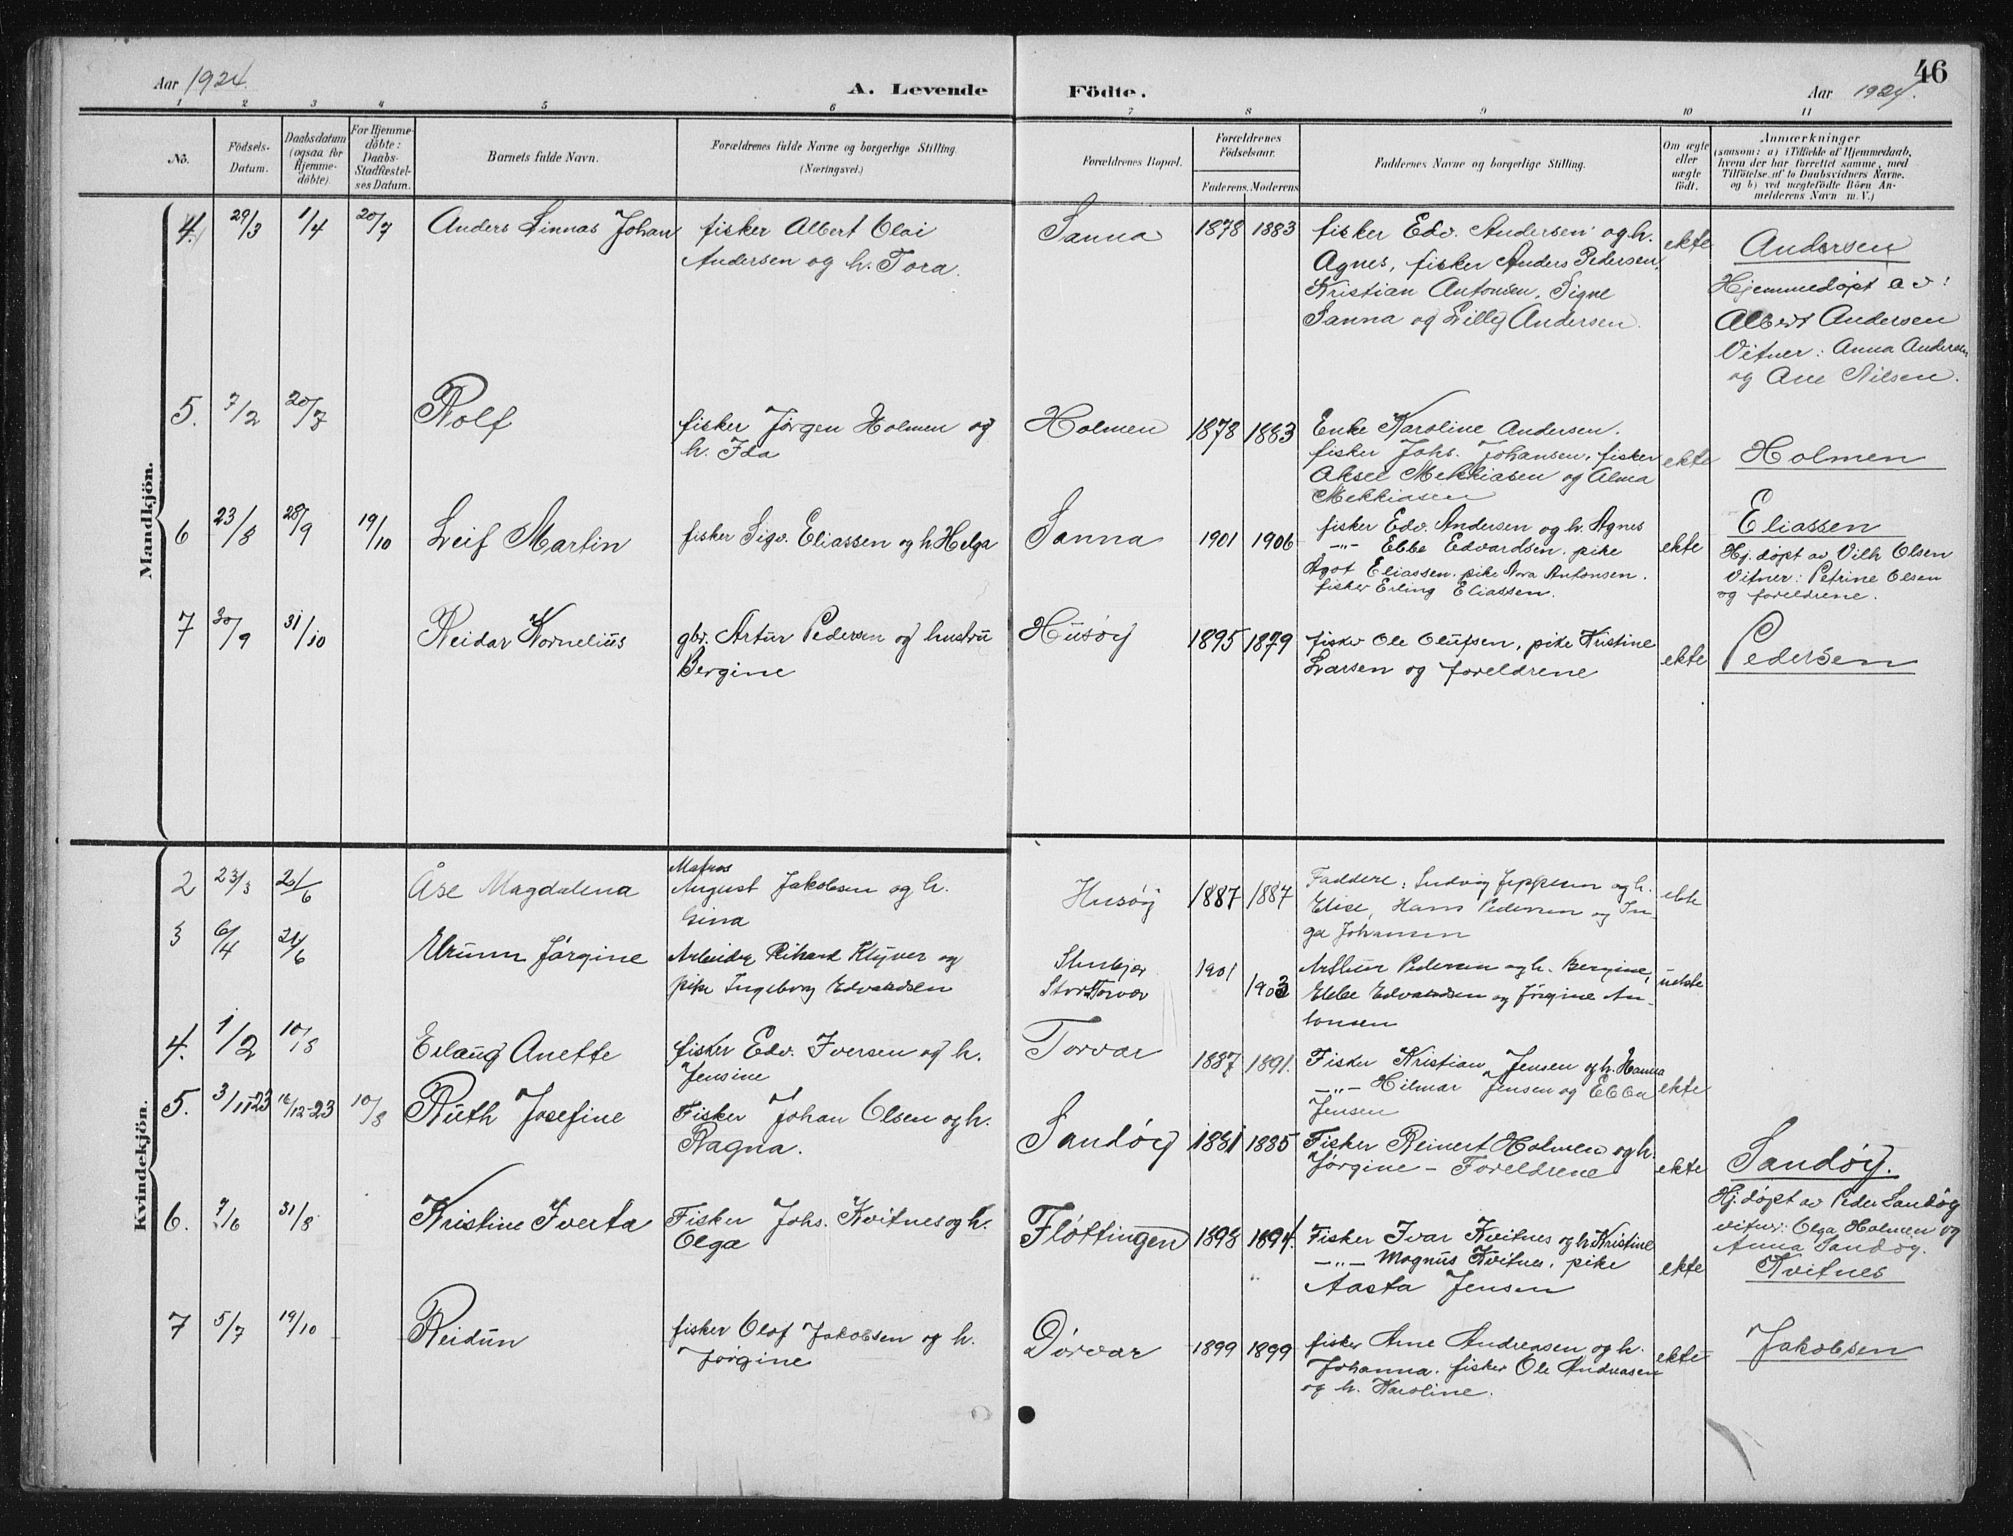 Aar 1924.
A. Levende
Födte.
Aar 1924.
46
1 2 3 4 5 6 7 8 9 10 11
No.
Födsels-
Datum.
Daabsdatum
(ogsaa for
Hjemme-
döbte).
For Hjemme-
döbte:
Daabs-
Stadfæstel-
ses Datum.
Barnets fulde Navn.
Forældrenes fulde Navne og borgerlige Stilling.
(Næringsvei.)
Forældrenes Bopæl.
Forældrenes
Födselsaar.
Faderens. Moderens.
Faddernes Navne og borgerlige Stilling.
Om ægte
eller
uægte
födt.
Anmærkninger
(saasom: a) i Tilfælde af Hjemmedaab,
hvem der har forrettet samme, med
Tilföielse af to Daabsvidners Navne.
og b) ved uægtefödte Börn An-
melderens Navn m. V.)
Mandkjön.
4. 29/3 1/4 20/7 Anders Linnas Johan
fisker Albert Olai
Andersen og h. Tora.
Sanna 1878 1883
fisker Edv. Andersen og h.
Agnes, fisker Anders Pedersen,
Kristian Antonsen, Signe
Sanna og Lilly Andersen.
ekte
Andersen
Hjemmedöpt av:
Albert Andersen
Vitner: Anna Andersen
og Ane Nilsen.
5. 7/2 20/7 Rolf
fisker Jørgen Holmen og
h. Ida
Holmen 1878 1883
Enke Karoline Andersen.
fisker Johs. Johansen, fisker
Aksel Mekkiasen og Alma
Mekkiasen
ekte
Holmen
6 23/8 28/9 19/10 Leif Martin
fisker Sigv. Eliassen og h Helga
Sanna 1901 1906
fisker Edv. Andersen og h. Agnes
—"— Ebbe Edvardsen. pike
Agot Eliassen. pike Nora Antonsen.
fisker Erling Eliassen.
ekte
Eliassen
Hj. döpt av Vilh Olsen
Vitner: Petrine Olsen
og foreldrene.
7 30/9 31/10 Reidar Kornelius
gbr. Artur Pedersen og hustru
Bergine
Husøy 1895 1879
fisker Ole Olufsen, pike Kristine
Larsen og foreldrene
ekte
Pedersen
Kvindekjön.
2 23/3 21/6 Åse Magdalena
Matros
August Jakobsen og h.
Gina
Husøy 1887 1887
Faddere: Ludvig Jeppesen og h.
Elise, Hans Pedersen og In-
ga Johansen
ekte
3 6/4 21/6 Jørgine
Arbeider Rikard Klyver og
pike Ingeborg Edvardsen
Stor Torvær
1901 1903
Arthur Pedersen og h. Bergine,
Ebbe Edvardsen og Jørgine An-
tonsen
uekte
4. 1/2 10/8 Erlaug Anette
fisker Edv. Iversen og h.
Jensine
Torvær 1887 1891.
Fisker Kristian Jensen og h. Hanna
—"— Hilmar Jensen og Ebba
Jensen
ekte
5. 3/11-23 16/12-23 10/8 Ruth Josefine
Fisker Johan Olsen og h.
Ragna.
Sandøy 1881 1885
Fisker Reinert Holmen og h.
Jørgine – Foreldrene
ekte
Sandøy.
Hj. döpt av Peder Sandøy
vitner: Olga Holmen og
Anna Sandøy.
6. 7/6 31/8 Kristine Iverta
Fisker Johs. Kvitnes og h.
Olga
Fløttingen 1898 1894.
Fisker Ivar Kvitnes og h Kristine
—"— Magnus Kvitnes, pike
Aasta Jensen
ekte
Kvitnes
7 5/7 19/10 Reidun
fisker Olaf Jakobsen og h.
Jørgine
Dørvær 1899 1899
fisker Arne Andreasen og h.
Johanna. fisker Ole Andreasen
og h. Karoline.
ekte
Jakobsen